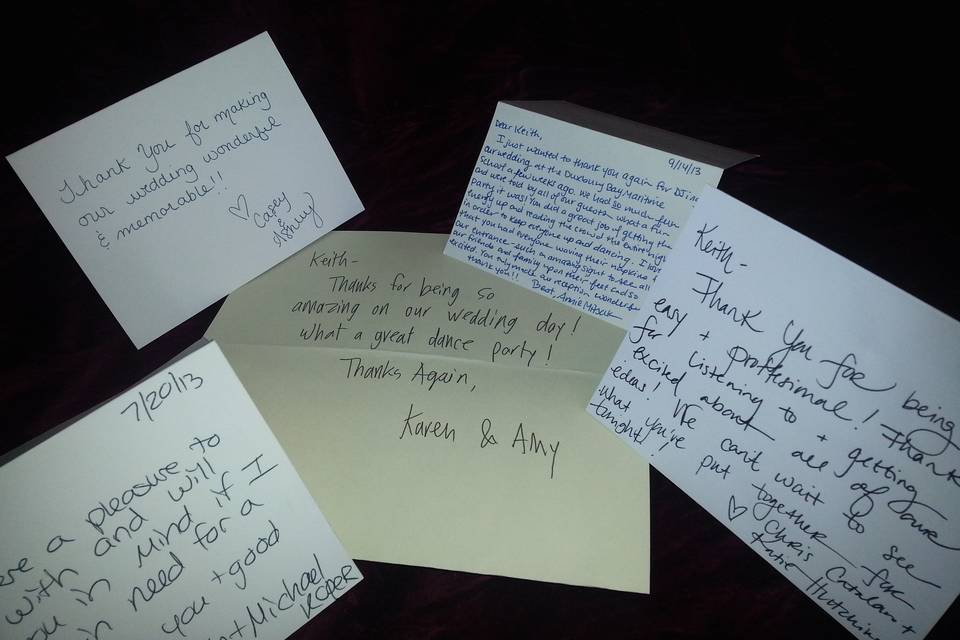 Thank You for making
our wedding wonderful
& memorable!!
♡ Casey
&
Ashley
Dear Keith,
9/14/13
I just wanted to thank you again for DJing
our wedding at the Duxbury Bay Maritime
School a few weeks ago. We had so much fun
and were told by all of our guests what a fun
party it was! You did a great job of getting the
energy up and reading the crowd the entire night
in order to keep everyone up and dancing. I
that you had everyone waving their napkins
our entrance - such an amazing sight to see all
our friends and family upon their feet and so
excited. You truly made our reception wonderful
thank you!!
Best, Annie
Keith-
Thanks for being so
amazing on our wedding day!
What a great dance party!
Thanks Again,
Karen & Amy
Keith-
Thank You for being
easy + professional! Thank
for listening to + getting
excited about all of our
ideas! We can't wait to see
what you've put together for
tonight!
♡ Chris Catalan +
Katie Hutchin
7/20/13
ere a pleasure to
with and will
ou in mind if I
in need for a
you + good
+ Michael
Roper